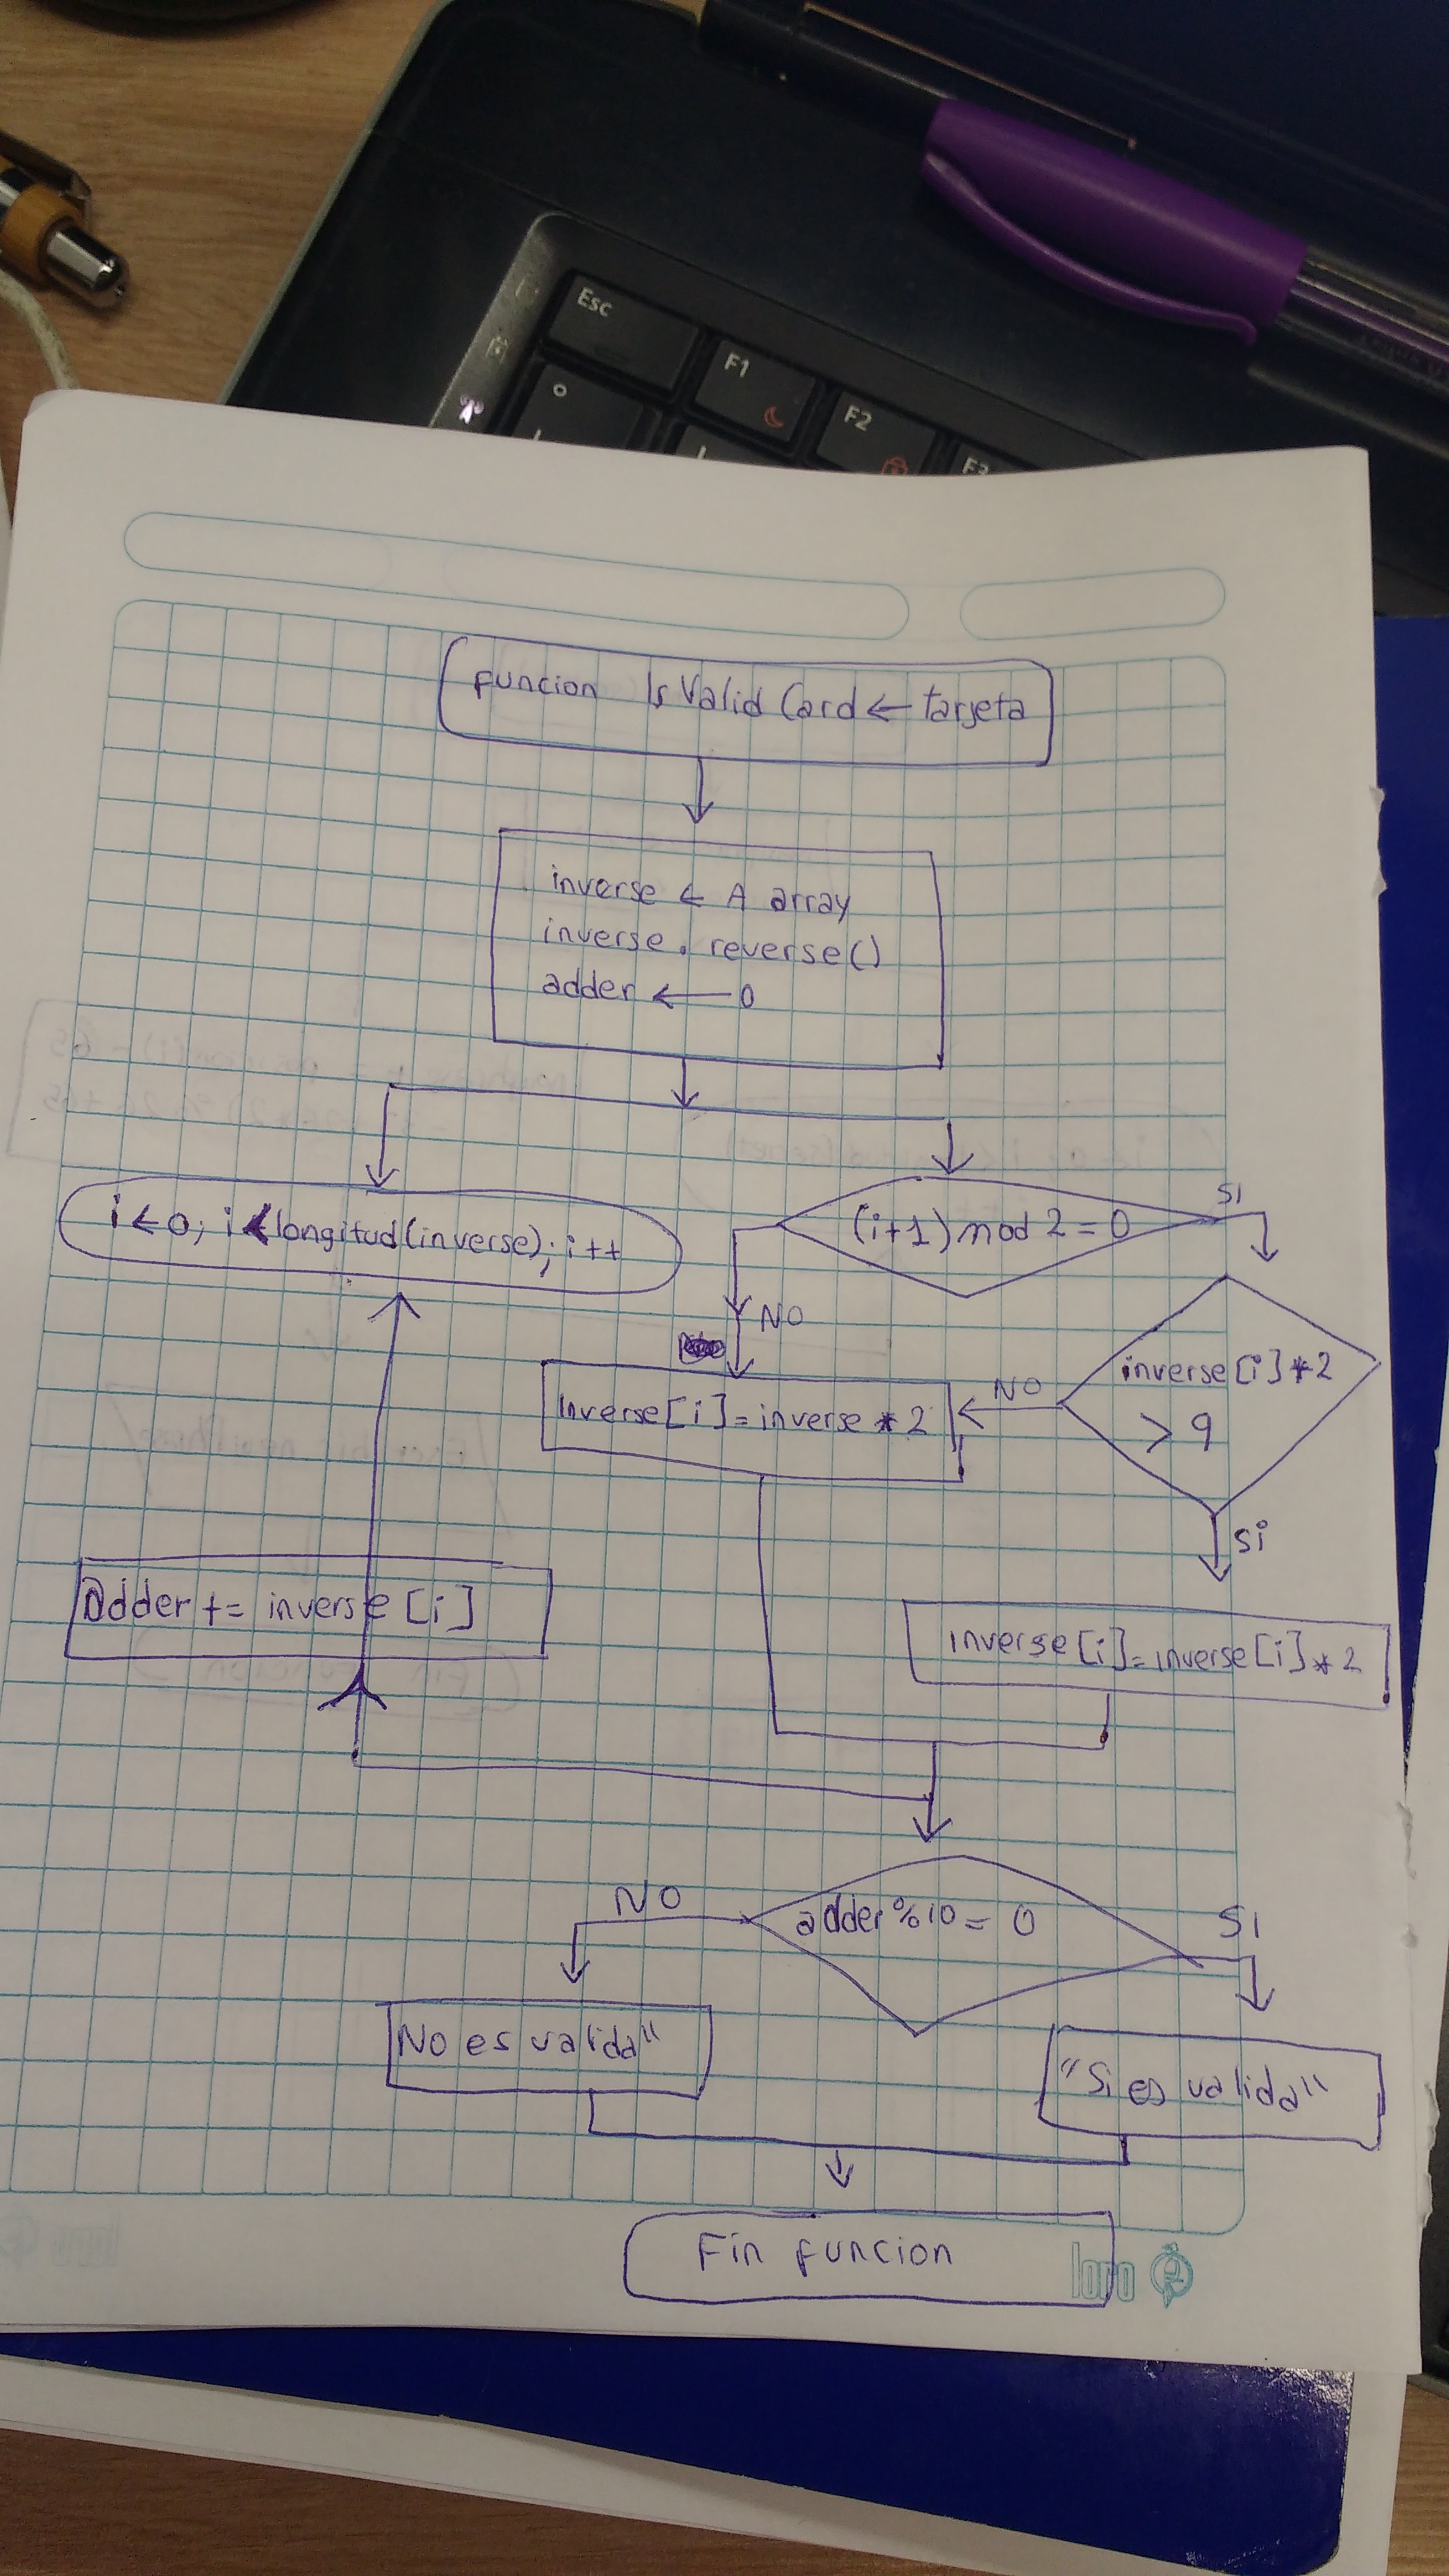 Esc
F1
F2
F3
funcion IsValid Card ← tarjeta
inverse ← A array
inverse. reverse()
adder ← 0
i ← 0; i < longitud(inverse); i++
(i+1) mod 2 = 0
SI
NO
inverse[i]*2
> 9
NO
Inverse[i] = inverse * 2
Si
Adder += inverse [i]
inverse[i] = inverse[i] * 2
adder % 10 = 0
NO
SI
No es valida"
"Si es valida"
Fin funcion
loro